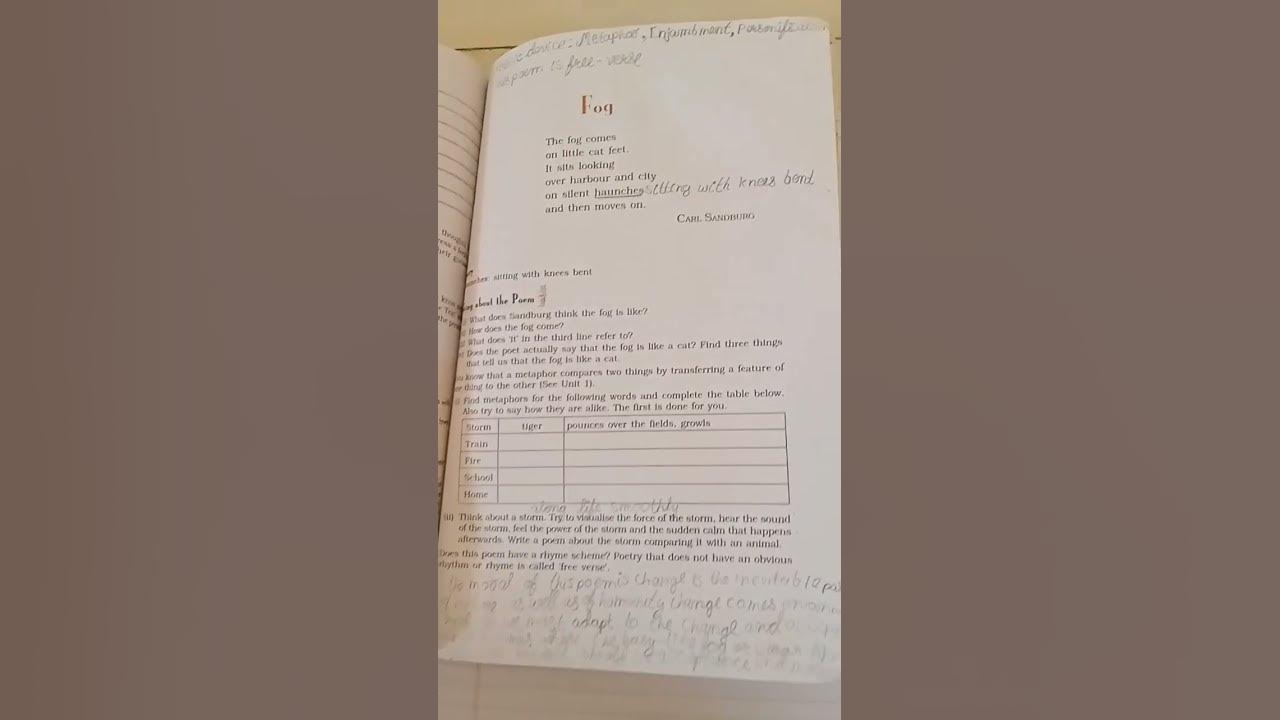 device: Metaphor, Enjambment, Personific
poem is free-verse
Fog
The fog comes
on little cat feet.
It sits looking
over harbour and city
on silent haunches sitting with knees bend
and then moves on.
CARL SANDBURG
sitting with knees bent
about the Poem
What does Sandburg think the fog is like?
How does the fog come?
What does 'it' in the third line refer to?
Does the poet actually say that the fog is like a cat? Find three things
that tell us that the fog is like a cat.
know that a metaphor compares two things by transferring a feature of
thing to the other (See Unit 1).
Find metaphors for the following words and complete the table below.
Also try to say how they are alike. The first is done for you.
Storm tiger pounces over the fields, growls
Train
Fire
School
Home
along life smoothly
(ii) Think about a storm. Try to visualise the force of the storm, hear the sound
of the storm, feel the power of the storm and the sudden calm that happens
afterwards. Write a poem about the storm comparing it with an animal.
Does this poem have a rhyme scheme? Poetry that does not have an obvious
rhythm or rhyme is called 'free verse'.
moral of this poem is change is the inevitable
as well as of humanity change comes
must adapt to the change and